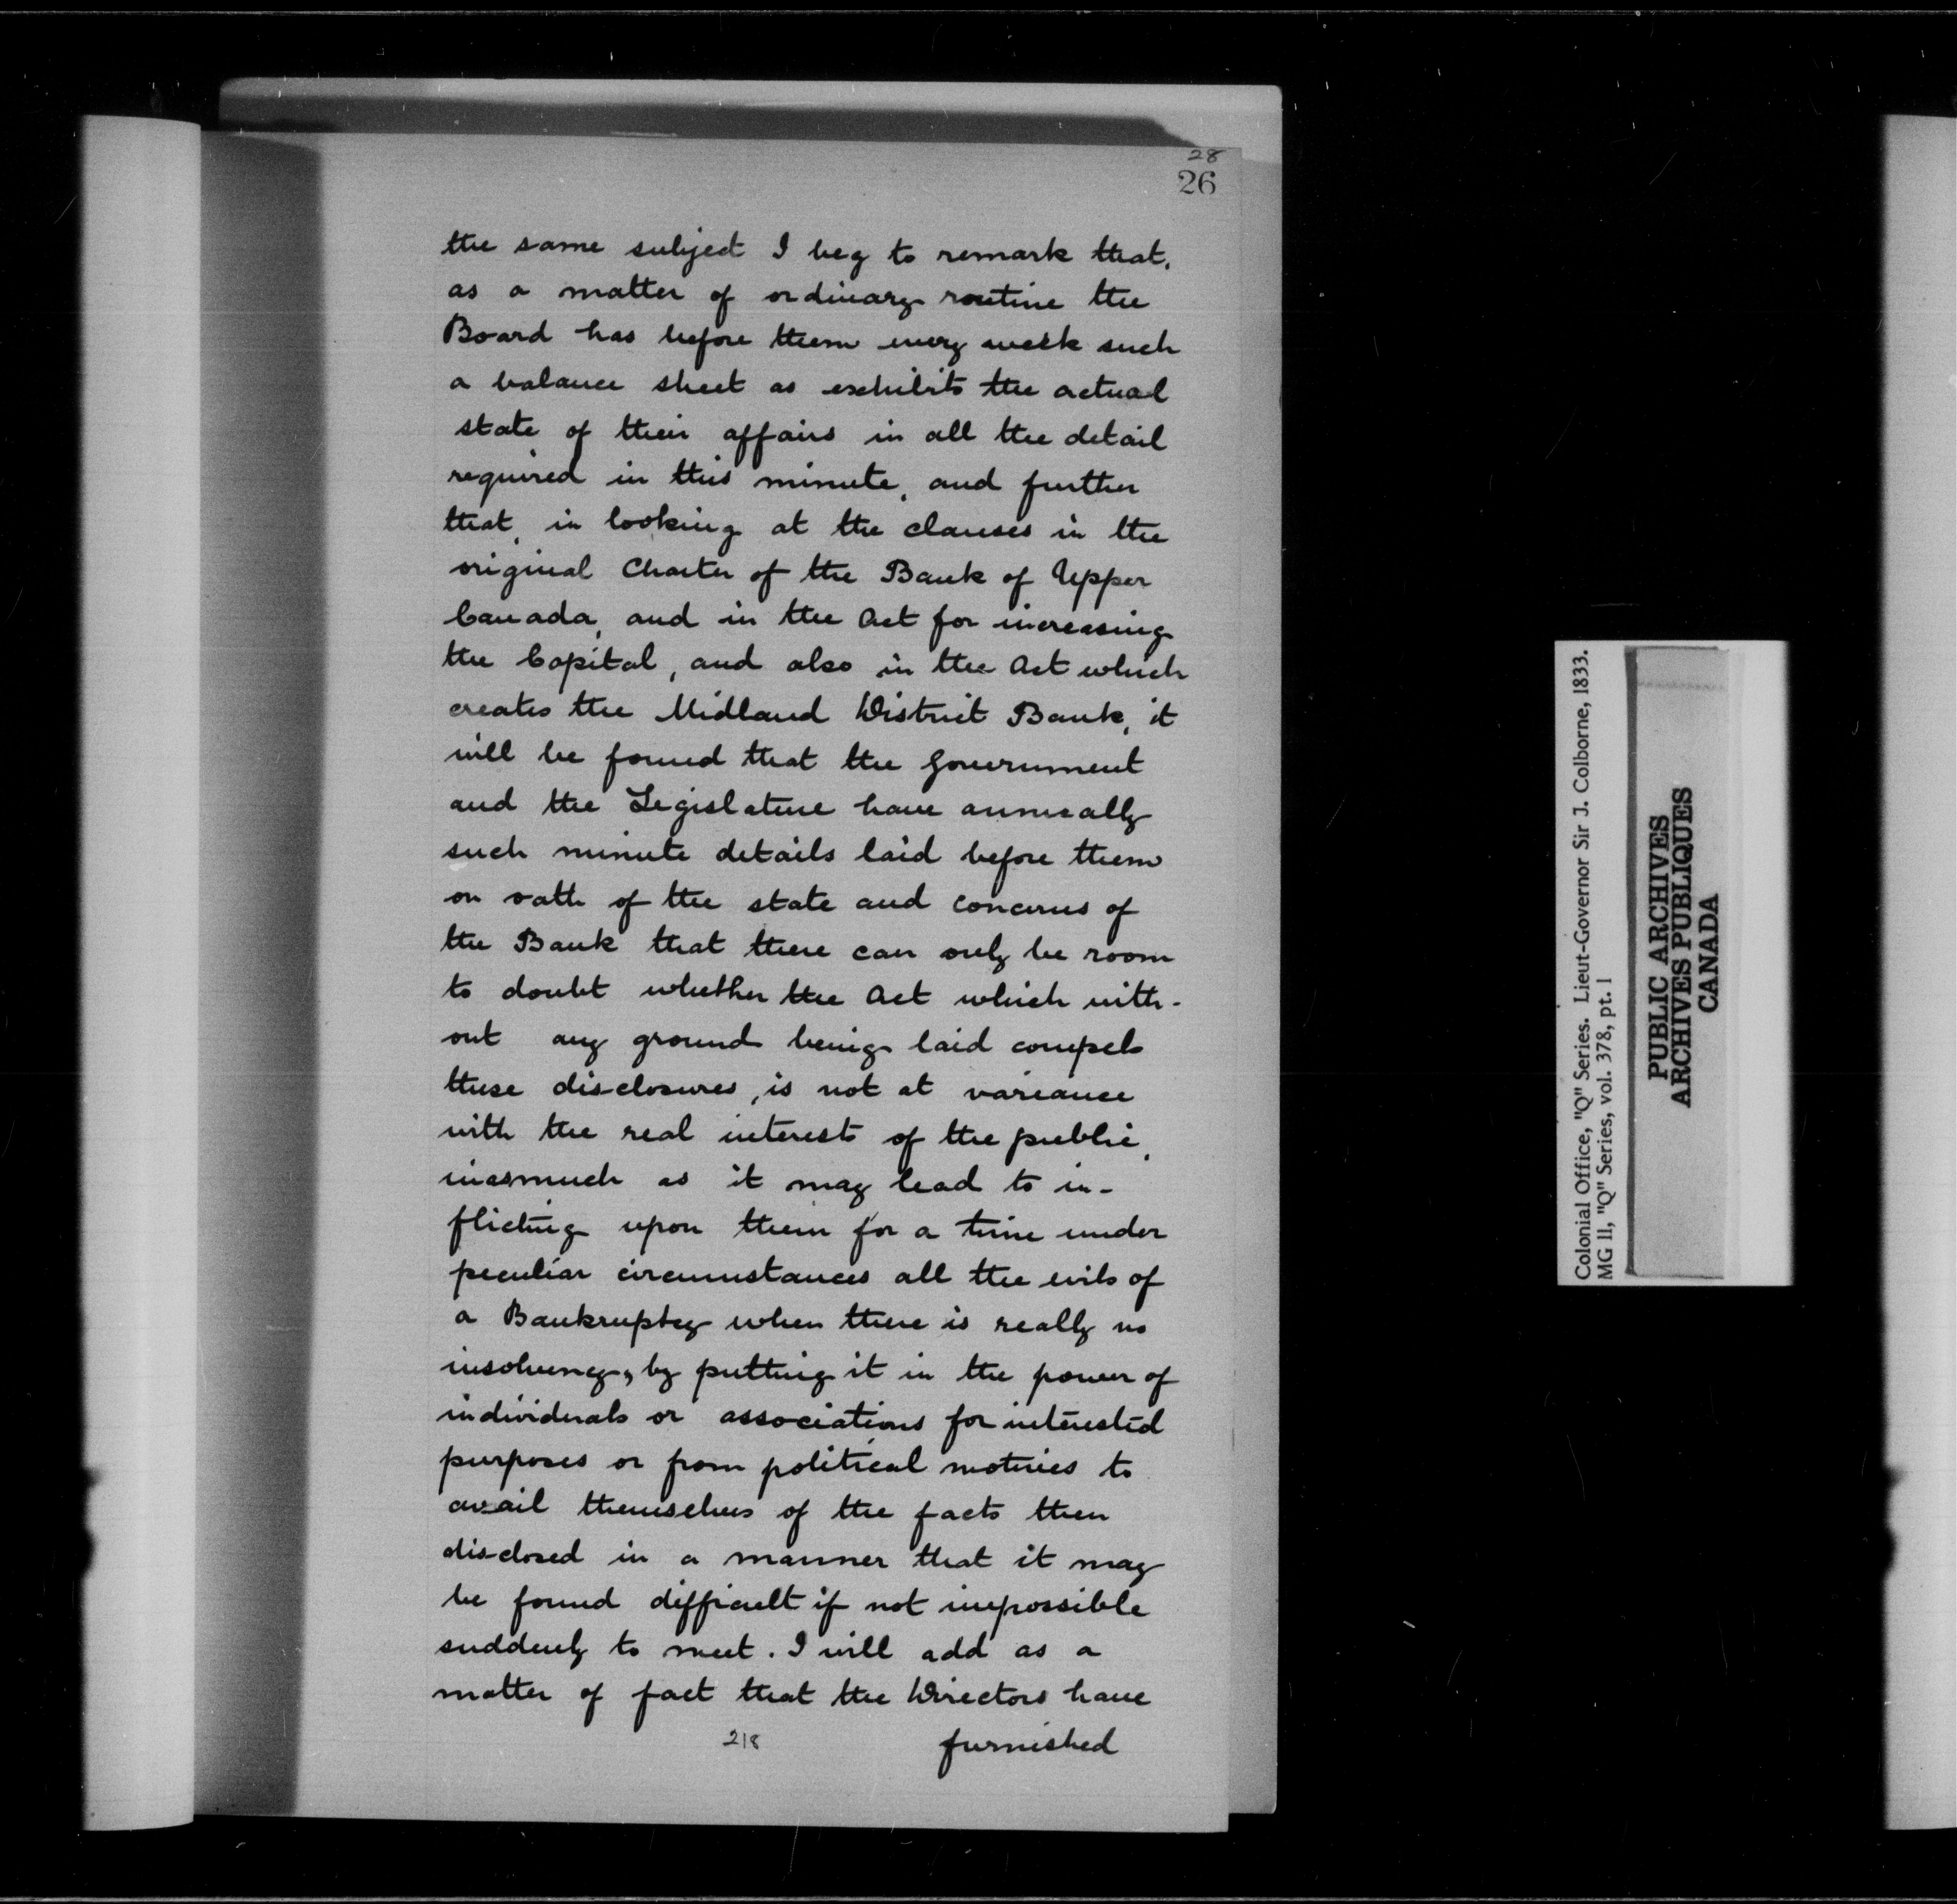 28
26
the same subject I beg to remark that,
as a matter of ordinary routine the
Board has before them every week such
a balance sheet as exhibits the actual
state of their affairs in all the detail
required in this minute, and further
that, in looking at the clauses in the
original Charter of the Bank of Upper
Canada, and in the Act for increasing
the Capital, and also in the Act which
creates the Midland District Bank, it
will be found that the Government
and the Legislature have annually
such minute details laid before them
on oath of the state and concerns of
the Bank that there can only be room
to doubt whether the Act which with-
out any ground being laid compels
these disclosures, is not at variance
with the real interests of the public,
inasmuch as it may lead to in-
flicting upon them for a time under
peculiar circumstances all the evils of
a Bankruptcy when there is really no
insolvency, by putting it in the power of
individuals or associations for interested
purposes or from political motives to
avail themselves of the facts then
disclosed in a manner that it may
be found difficult if not impossible
suddenly to meet. I will add as a
matter of fact that the Directors have
218 furnished
Colonial Office, "Q" Series. Lieut-Governor Sir J. Colborne, 1833.
MG 11, "Q" Series, vol. 378, pt. 1
PUBLIC ARCHIVES
ARCHIVES PUBLIQUES
CANADA